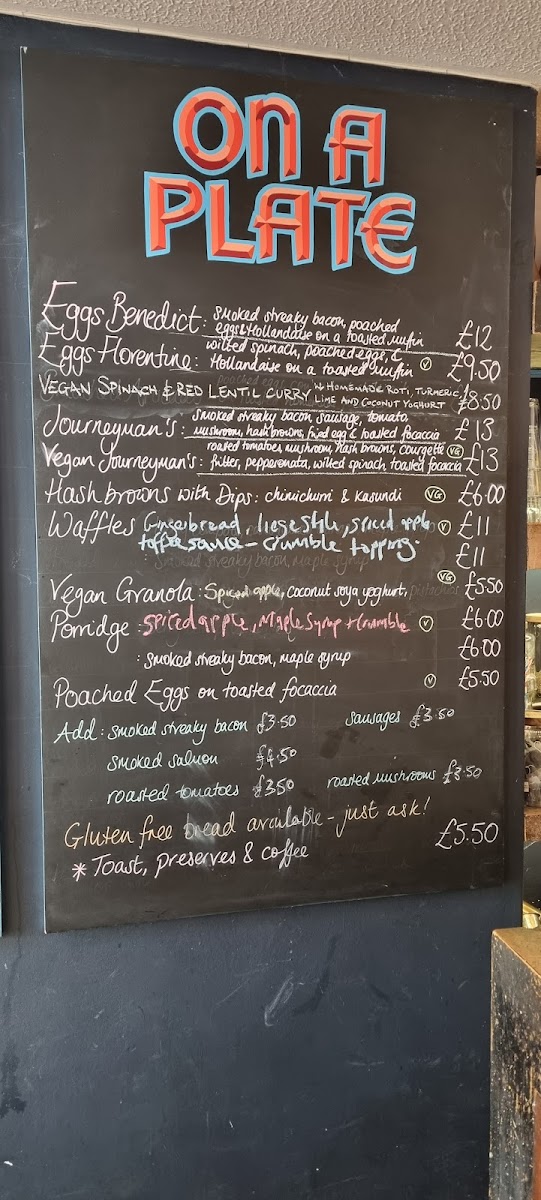 ON A
PLATE
Eggs Benedict: smoked streaky bacon, poached
eggs & Hollandaise on a toasted muffin £12
Eggs Florentine: wilted spinach, poached eggs, &
Hollandaise on a toasted muffin V £9.50
VEGAN SPINACH & RED LENTIL CURRY W HOMEMADE ROTI, TURMERIC,
LIME AND COCONUT YOGHURT £8.50
Journeyman's: smoked streaky bacon, sausage, tomato,
mushroom, hash browns, fried egg & toasted focaccia £13
Vegan Journeyman's: roasted tomatoes, mushroom, hash browns, courgette VG
fritter, pepperonata, wilted spinach, toasted focaccia £13
Hash browns with Dips: chimichurri & Kasundi VG £6.00
Waffles Gingerbread, liege style, spiced apple V £11
toffee sauce - crumble topping.
smoked streaky bacon, maple syrup £11
Vegan Granola: Spiced apple, coconut soya yoghurt, pistachios VG £5.50
Porridge: spiced apple, Maple Syrup + crumble V £6.00
: smoked streaky bacon, maple syrup £6.00
Poached Eggs on toasted focaccia V £5.50
Add: smoked streaky bacon £3.50 sausages £3.50
smoked salmon £4.50
roasted tomatoes £3.50 roasted mushrooms £3.50
Gluten free bread available - just ask!
* Toast, preserves & coffee £5.50